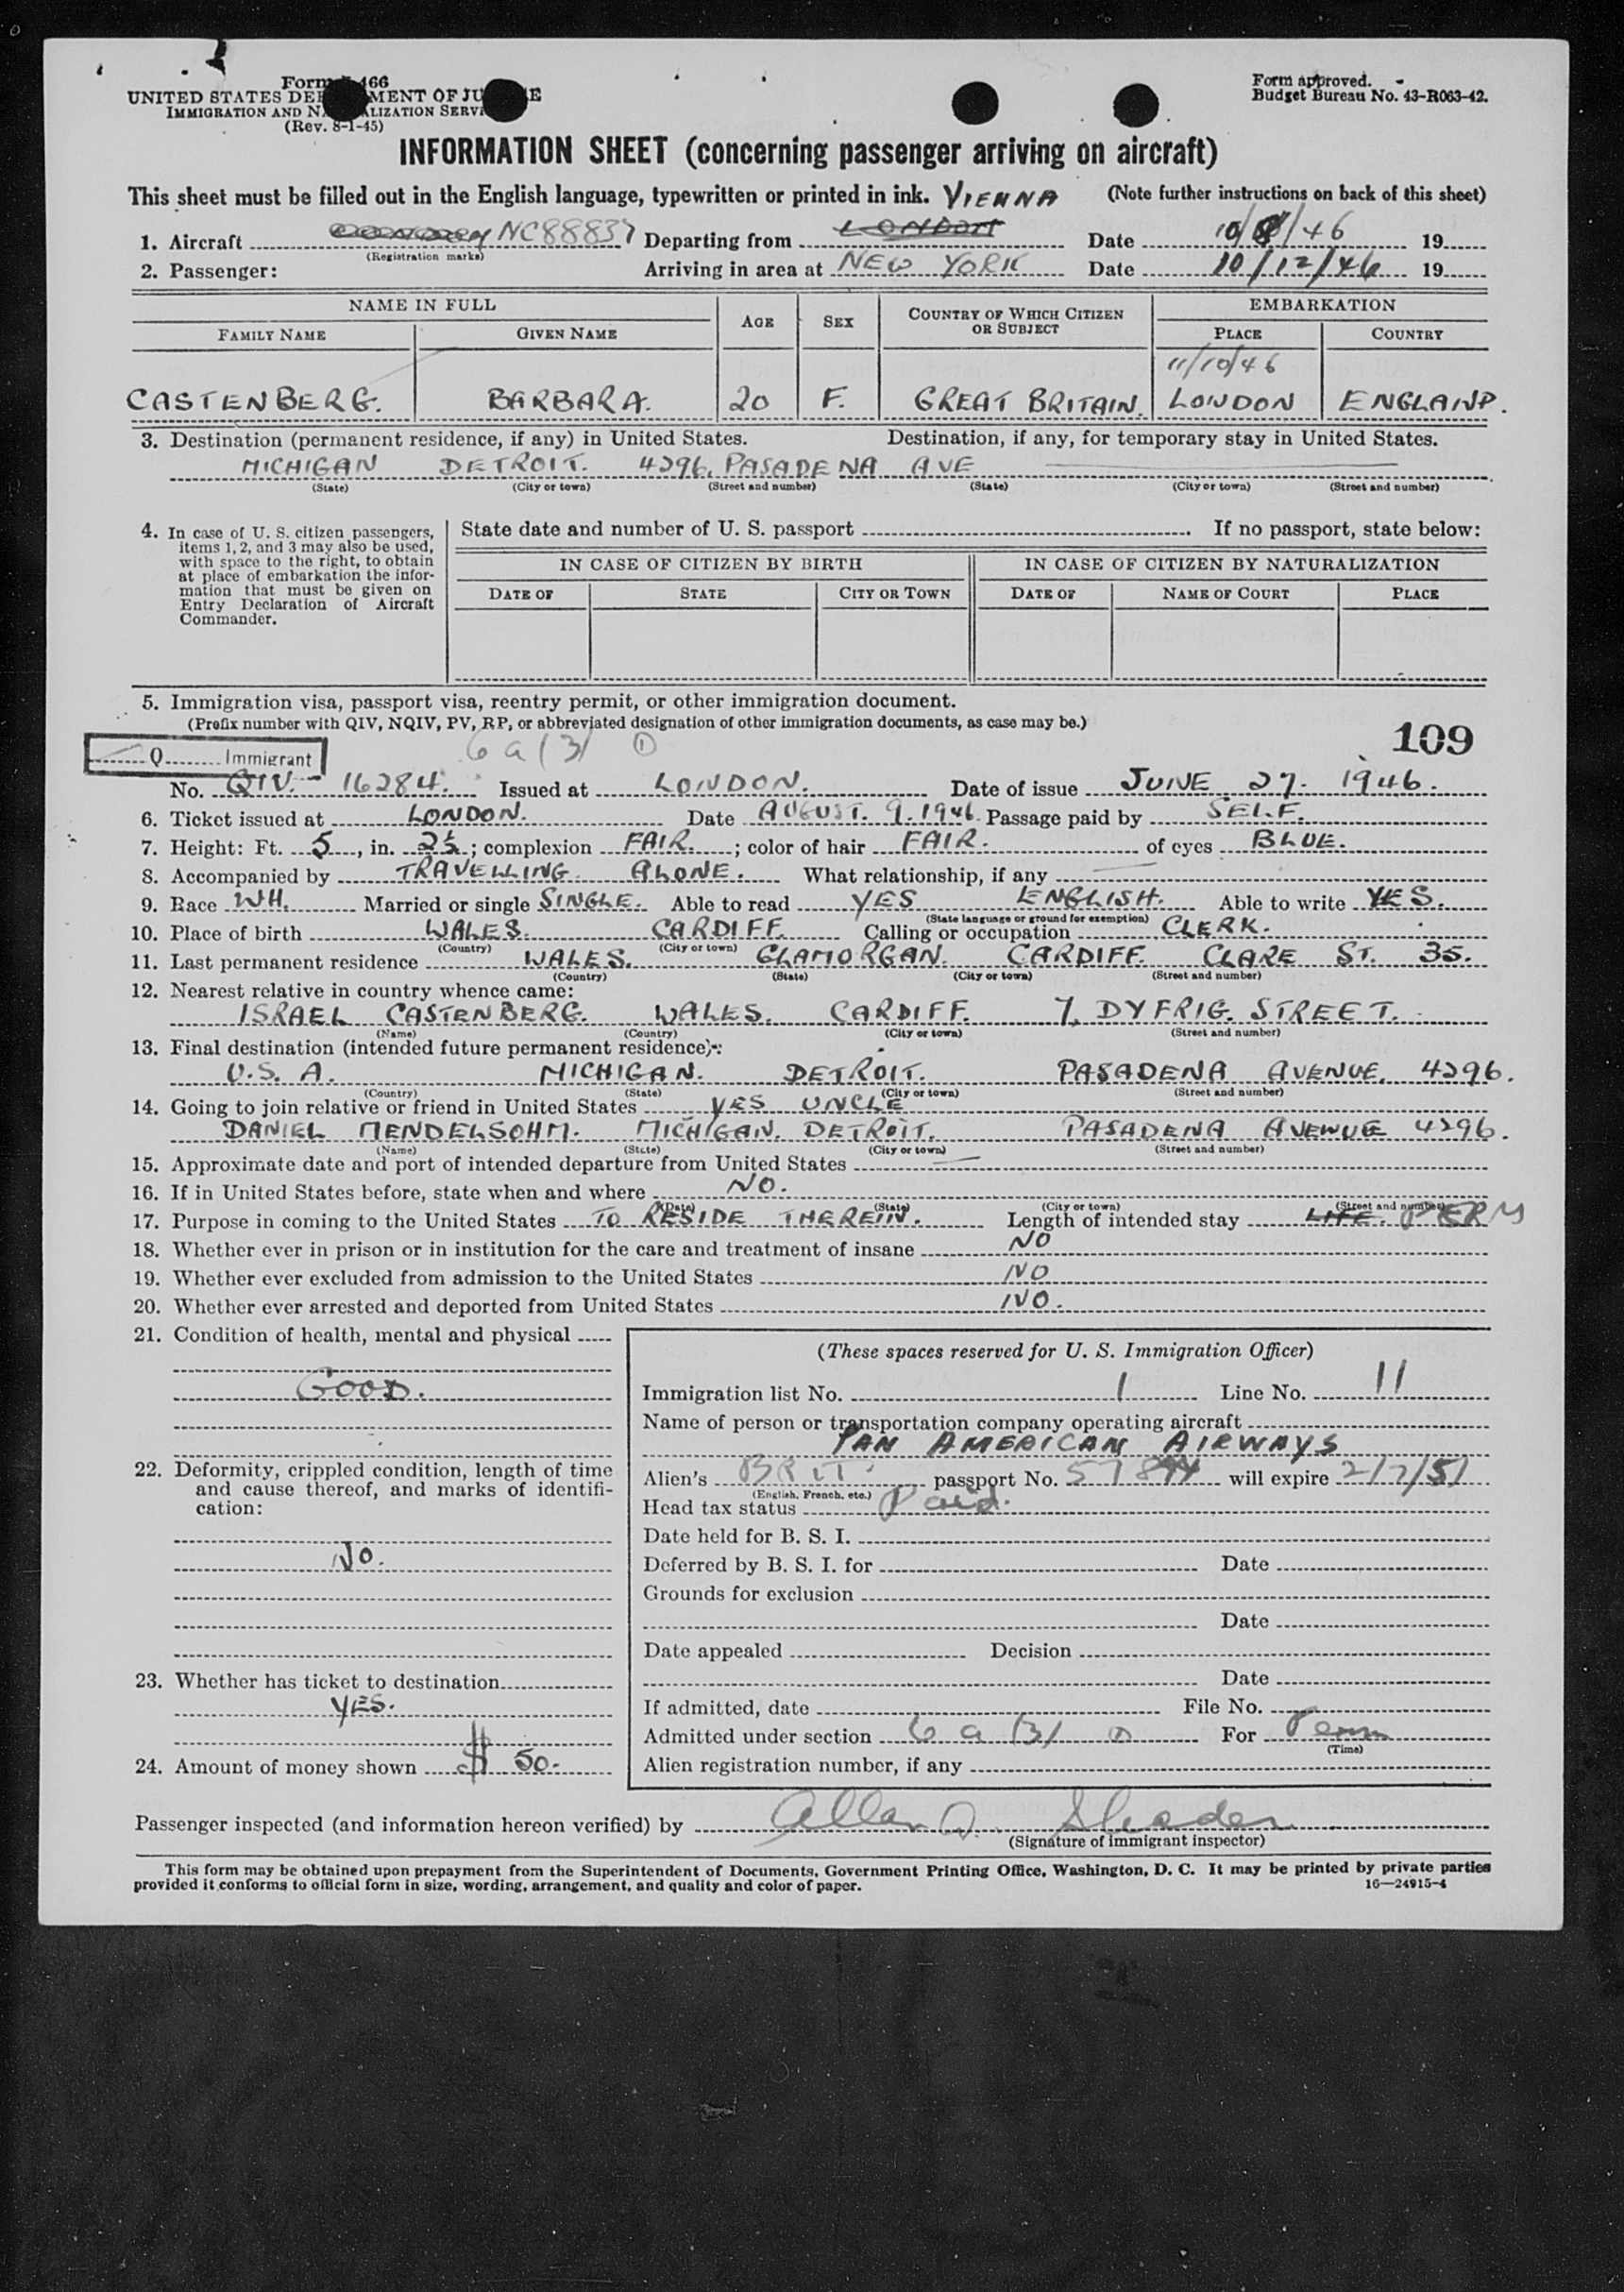 Form 466
UNITED STATES DEPARTMENT OF JUSTICE
IMMIGRATION AND NATURALIZATION SERVICE
(Rev. 8-1-45)
Form approved.
Budget Bureau No. 43-R063-42.
INFORMATION SHEET (concerning passenger arriving on aircraft)
This sheet must be filled out in the English language, typewritten or printed in ink. VIENNA (Note further instructions on back of this sheet)
1. Aircraft NC88837 Departing from LONDON Date 10/ /46 19
(Registration marks)
2. Passenger: Arriving in area at NEW YORK Date 10/12/46 19
NAME IN FULL AGE SEX COUNTRY OF WHICH CITIZEN OR SUBJECT EMBARKATION
FAMILY NAME GIVEN NAME PLACE COUNTRY
11/10/46
CASTENBERG. BARBARA. 20 F. GREAT BRITAIN. LONDON ENGLAND.
3. Destination (permanent residence, if any) in United States. Destination, if any, for temporary stay in United States.
MICHIGAN DETROIT. 4296, PASADENA AVE
(State) (City or town) (Street and number) (State) (City or town) (Street and number)
4. In case of U. S. citizen passengers, items 1, 2, and 3 may also be used, with space to the right, to obtain at place of embarkation the information that must be given on Entry Declaration of Aircraft Commander.
State date and number of U. S. passport . If no passport, state below:
IN CASE OF CITIZEN BY BIRTH IN CASE OF CITIZEN BY NATURALIZATION
DATE OF STATE CITY OR TOWN DATE OF NAME OF COURT PLACE
5. Immigration visa, passport visa, reentry permit, or other immigration document.
(Prefix number with QIV, NQIV, PV, RP, or abbreviated designation of other immigration documents, as case may be.)
109
Q Immigrant 6 a (3) 1
No. QIV. 16284. Issued at LONDON. Date of issue JUNE 27. 1946.
6. Ticket issued at LONDON. Date AUGUST. 9. 1946. Passage paid by SELF.
7. Height: Ft. 5, in. 2½; complexion FAIR. ; color of hair FAIR. of eyes BLUE.
8. Accompanied by TRAVELLING ALONE. What relationship, if any
9. Race WH. Married or single SINGLE. Able to read YES ENGLISH. Able to write YES.
(State language or ground for exemption)
10. Place of birth WALES. CARDIFF. Calling or occupation CLERK.
(Country) (City or town)
11. Last permanent residence WALES. GLAMORGAN. CARDIFF. CLARE ST. 35.
(Country) (State) (City or town) (Street and number)
12. Nearest relative in country whence came:
ISRAEL CASTENBERG. WALES. CARDIFF. 7, DYFRIG. STREET.
(Name) (Country) (City or town) (Street and number)
13. Final destination (intended future permanent residence):
U.S.A. MICHIGAN. DETROIT. PASADENA AVENUE, 4296.
(Country) (State) (City or town) (Street and number)
14. Going to join relative or friend in United States YES UNCLE
DANIEL MENDELSOHM. MICHIGAN. DETROIT. PASADENA AVENUE 4296.
(Name) (State) (City or town) (Street and number)
15. Approximate date and port of intended departure from United States
16. If in United States before, state when and where NO.
(Date) (State) (City or town) (Street and number)
17. Purpose in coming to the United States TO RESIDE THEREIN. Length of intended stay LIFE. PERM
18. Whether ever in prison or in institution for the care and treatment of insane NO
19. Whether ever excluded from admission to the United States NO
20. Whether ever arrested and deported from United States NO.
21. Condition of health, mental and physical
GOOD.
22. Deformity, crippled condition, length of time and cause thereof, and marks of identification:
NO.
23. Whether has ticket to destination
YES.
24. Amount of money shown $ 50.
(These spaces reserved for U. S. Immigration Officer)
Immigration list No. 1 Line No. 11
Name of person or transportation company operating aircraft
PAN AMERICAN AIRWAYS
Alien's BRIT. passport No. will expire 2/7/51
(English, French, etc.)
Head tax status Paid.
Date held for B. S. I.
Deferred by B. S. I. for Date
Grounds for exclusion
Date
Date appealed Decision
Date
If admitted, date File No.
Admitted under section 6 a (3) 1 For Perm
(Time)
Alien registration number, if any
Passenger inspected (and information hereon verified) by Allan
(Signature of immigrant inspector)
This form may be obtained upon prepayment from the Superintendent of Documents, Government Printing Office, Washington, D. C. It may be printed by private parties
provided it conforms to official form in size, wording, arrangement, and quality and color of paper.
16—24915-4